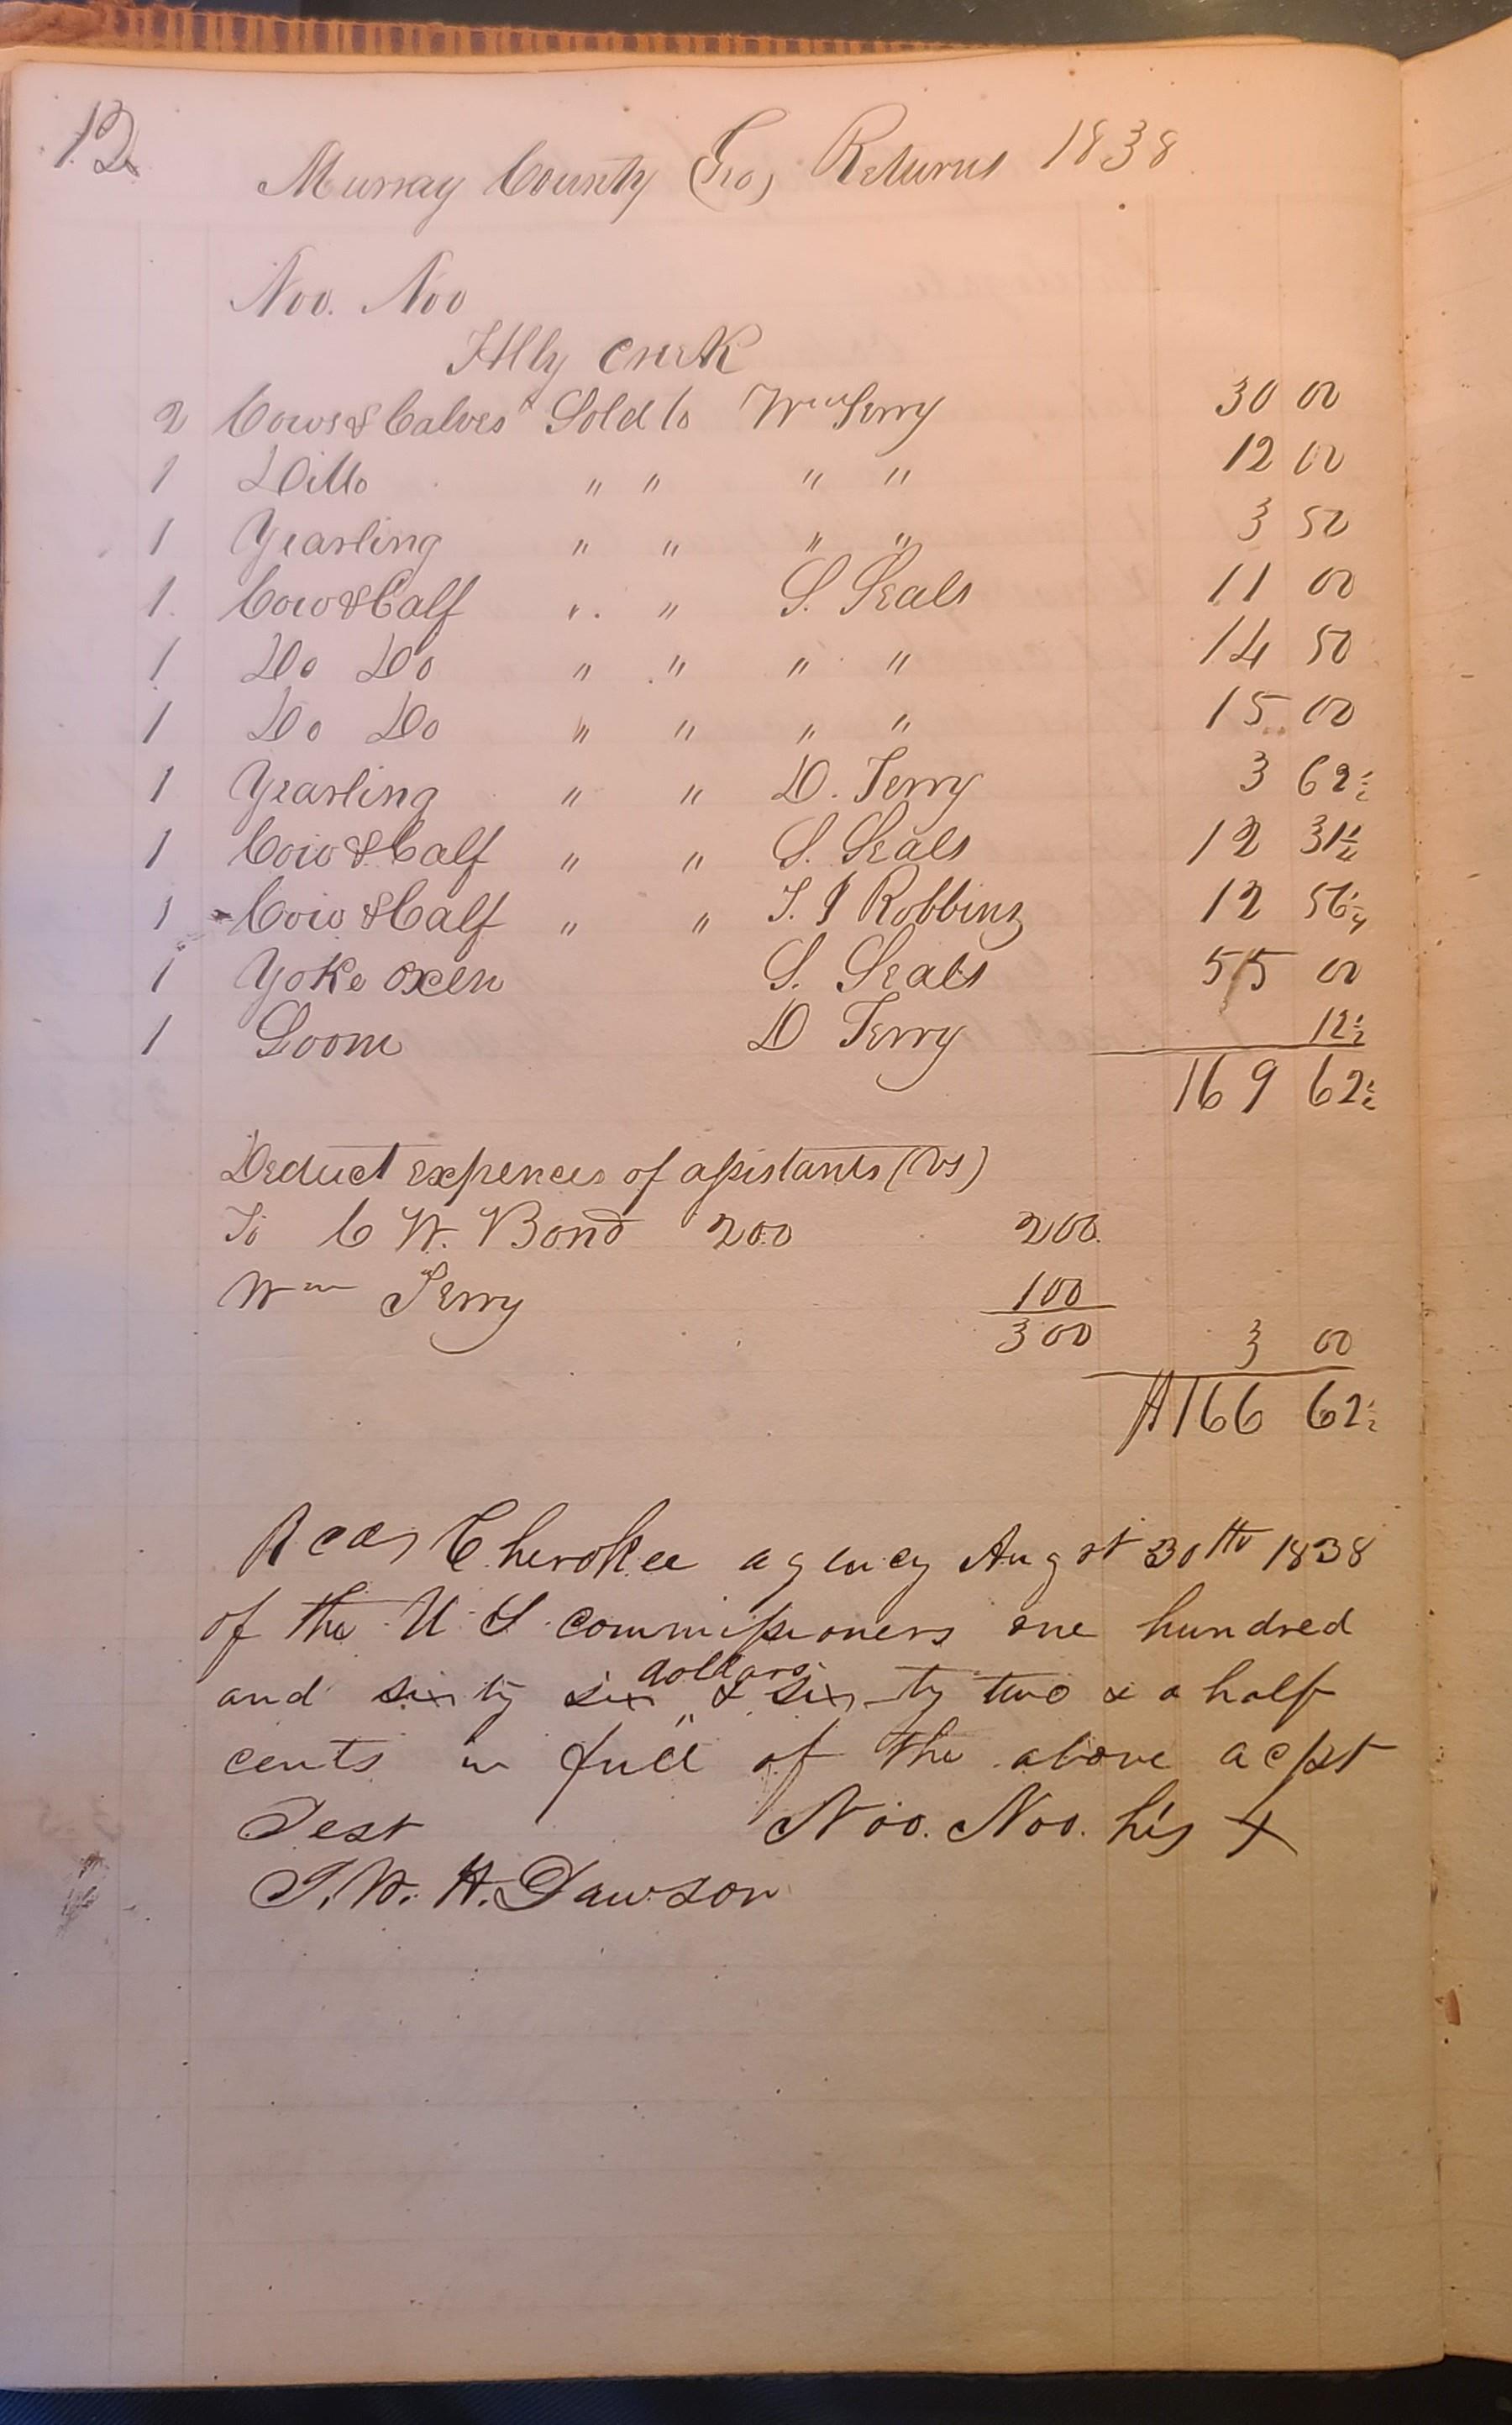 12
Murray County (Geo) Returns 1838
Noo. Noo
Creek
2 Cows & Calves Sold to Wm Terry 30 00
1 Ditto " " " " 12 00
1 Yearling " " " " 3 50
1 Cow & Calf " " S. Seals 11 00
1 Do Do " " " " 14 50
1 Do Do " " " " 15 00
1 Yearling " " D. Terry 3 62½
1 Cow & Calf " " S. Seals 12 31¼
1 Cow & Calf " " T. J Robbins 12 56¼
1 Yoke oxen S. Seals 55 00
1 Loom D Terry 12½
169 62½
Deduct expences of assistants (vs)
To C W. Bond 200 200
Wm Terry 100
300 3 00
$166 62½
Recd Cherokee agency Augst 30th 1838
of the U S commissioners one hundred
and sixty six dollars & sixty two & a half
cents in full of the above acpt
Test Noo. Noo. his X
T. W. H. Dawson